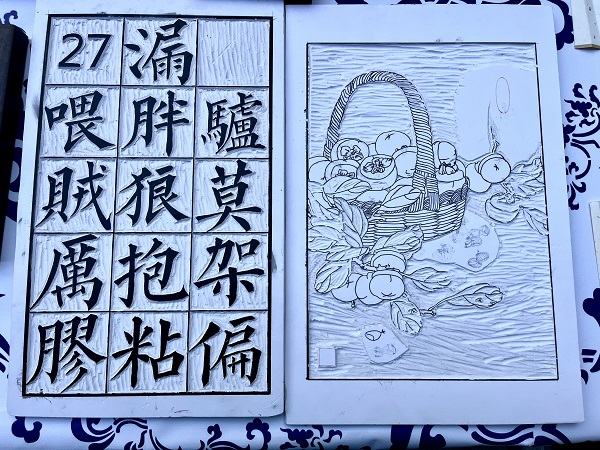 27 漏
喂 胖 驢
賊 狼 莫
厲 抱 架
膠 粘 偏